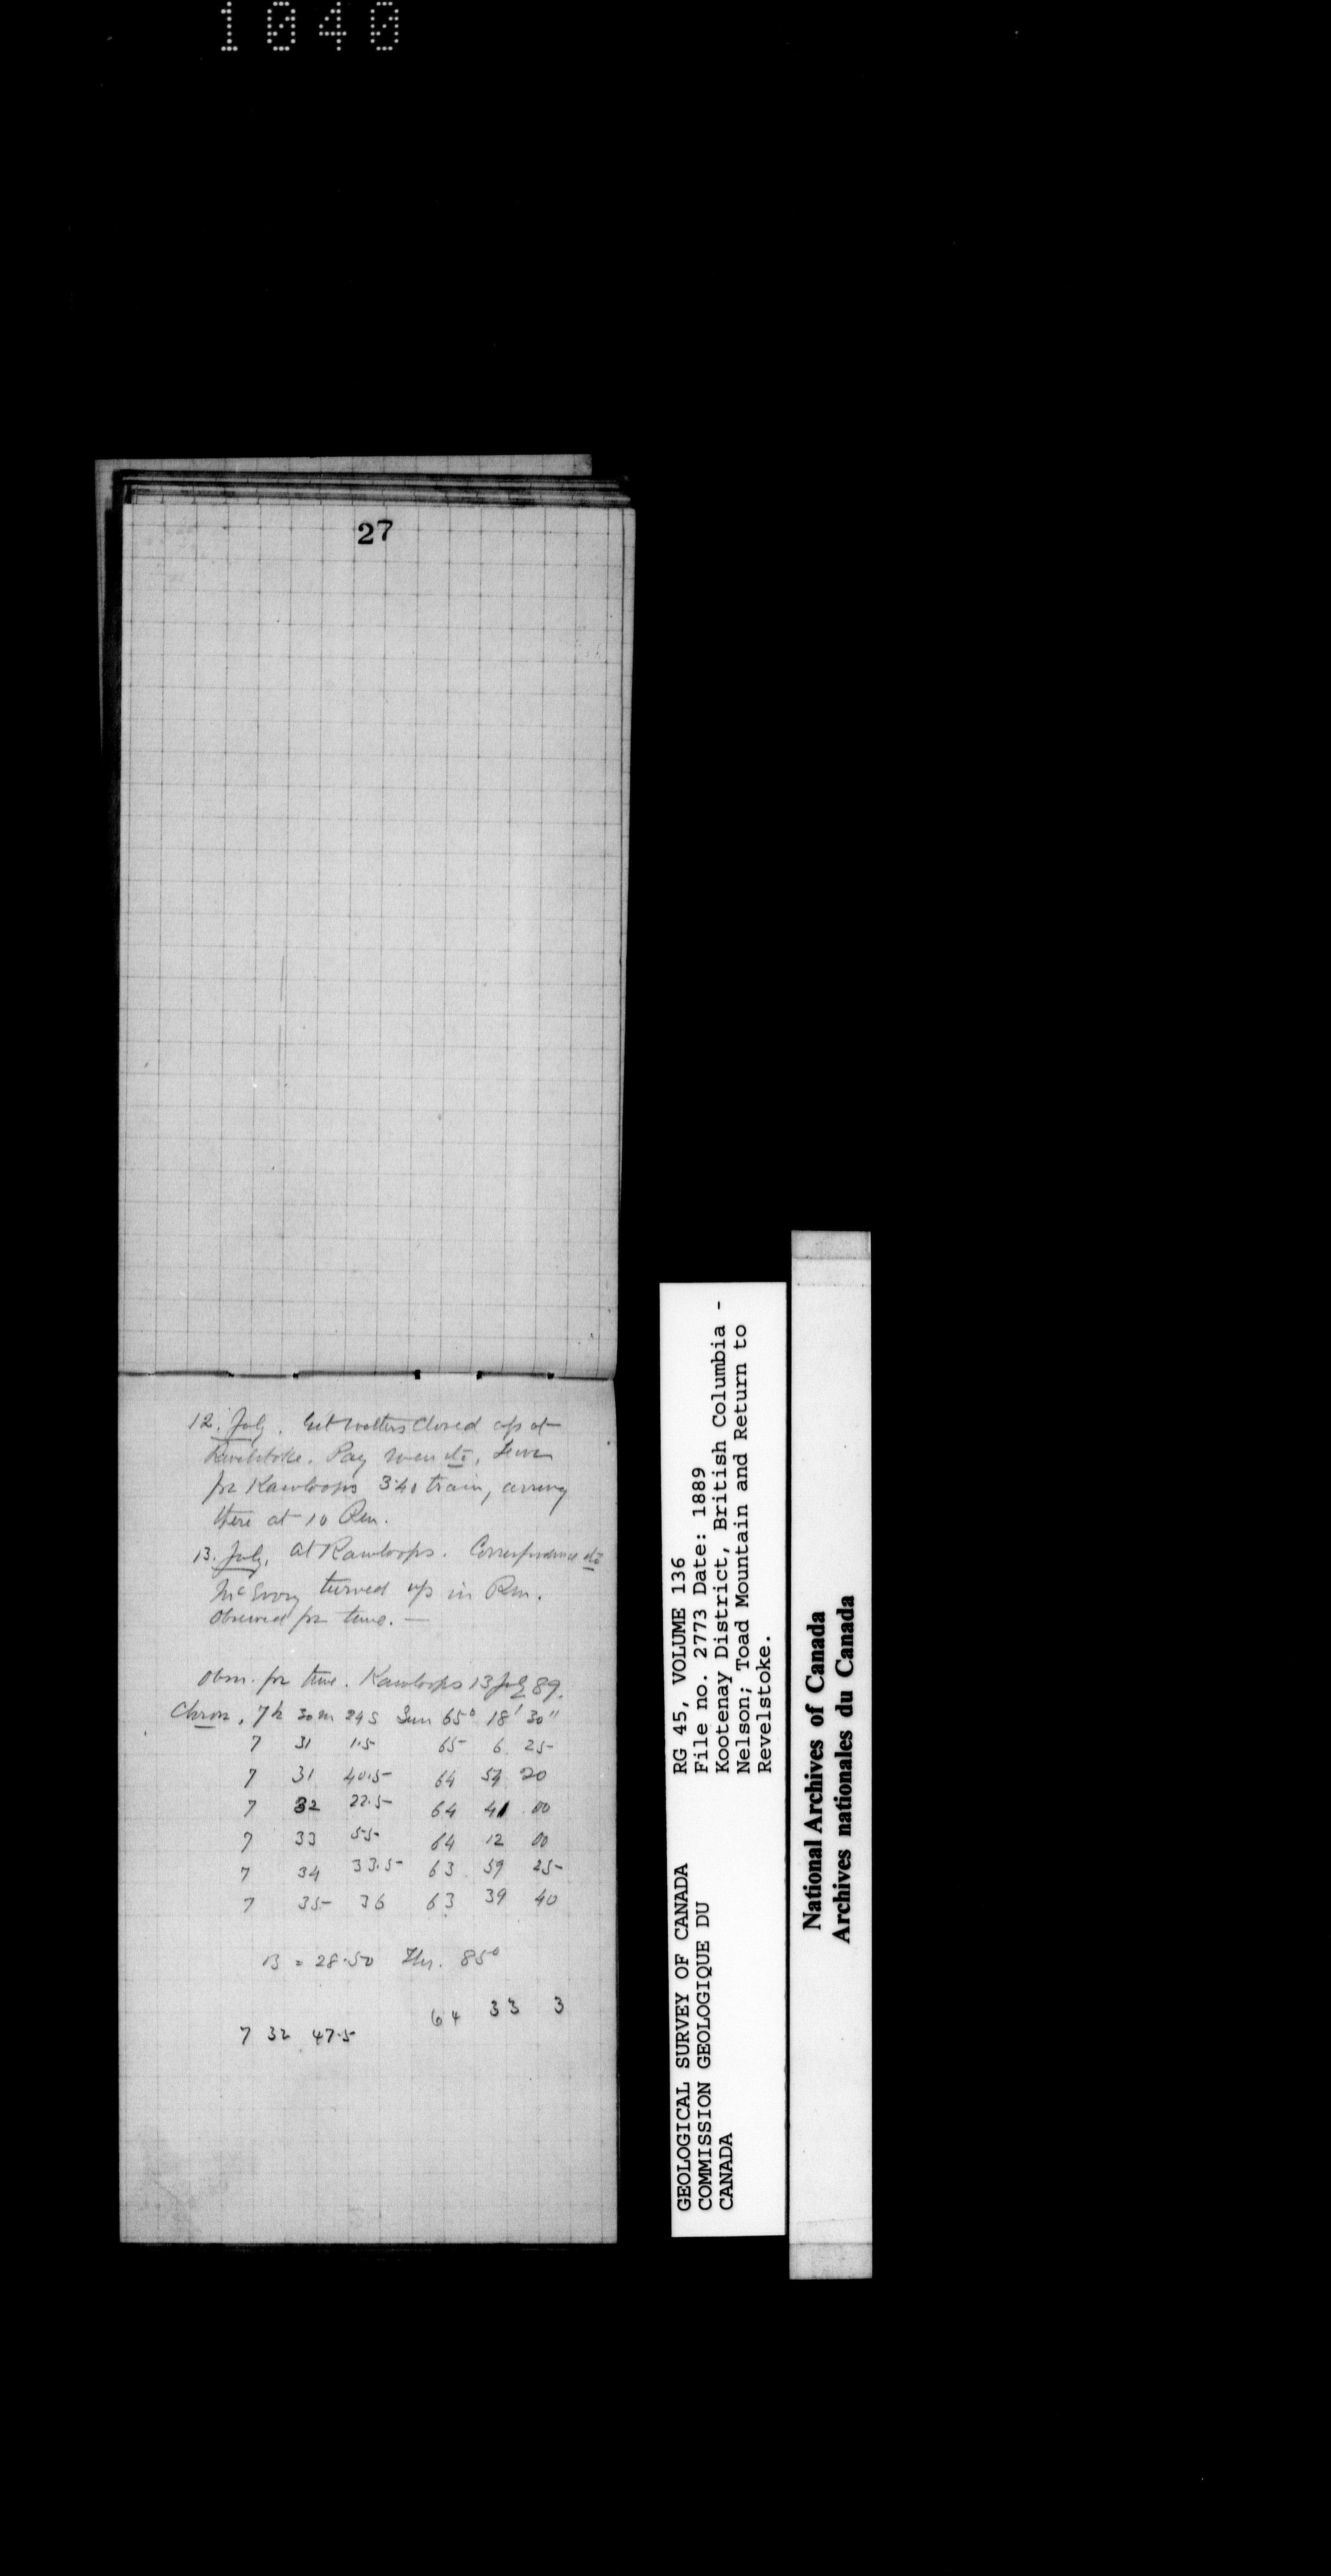 1040
27
12. July. Get matters closed up at
Revelstoke. Pay men etc, Leave
for Kamloops 3.40 train, arriving
there at 10 Pm.
13. July. At Kamloops. Correspondence etc
McEvoy turned up in Pm.
Observed for time. —
Obsn. for time. Kamloops 13 July 89.
Chron. 7h 30m 24s Sun 65° 18' 30"
7 31 1.5 65 6 25
7 31 40.5 64 54 20
7 32 22.5 64 41 00
7 33 55 64 12 00
7 34 33.5 63 59 25
7 35 36 63 39 40
B = 28.50 Ther. 85°
64 33 3
7 32 47.5
GEOLOGICAL SURVEY OF CANADA
COMMISSION GEOLOGIQUE DU
CANADA
RG 45, VOLUME 136
File no. 2773 Date: 1889
Kootenay District, British Columbia -
Nelson; Toad Mountain and Return to
Revelstoke.
National Archives of Canada
Archives nationales du Canada